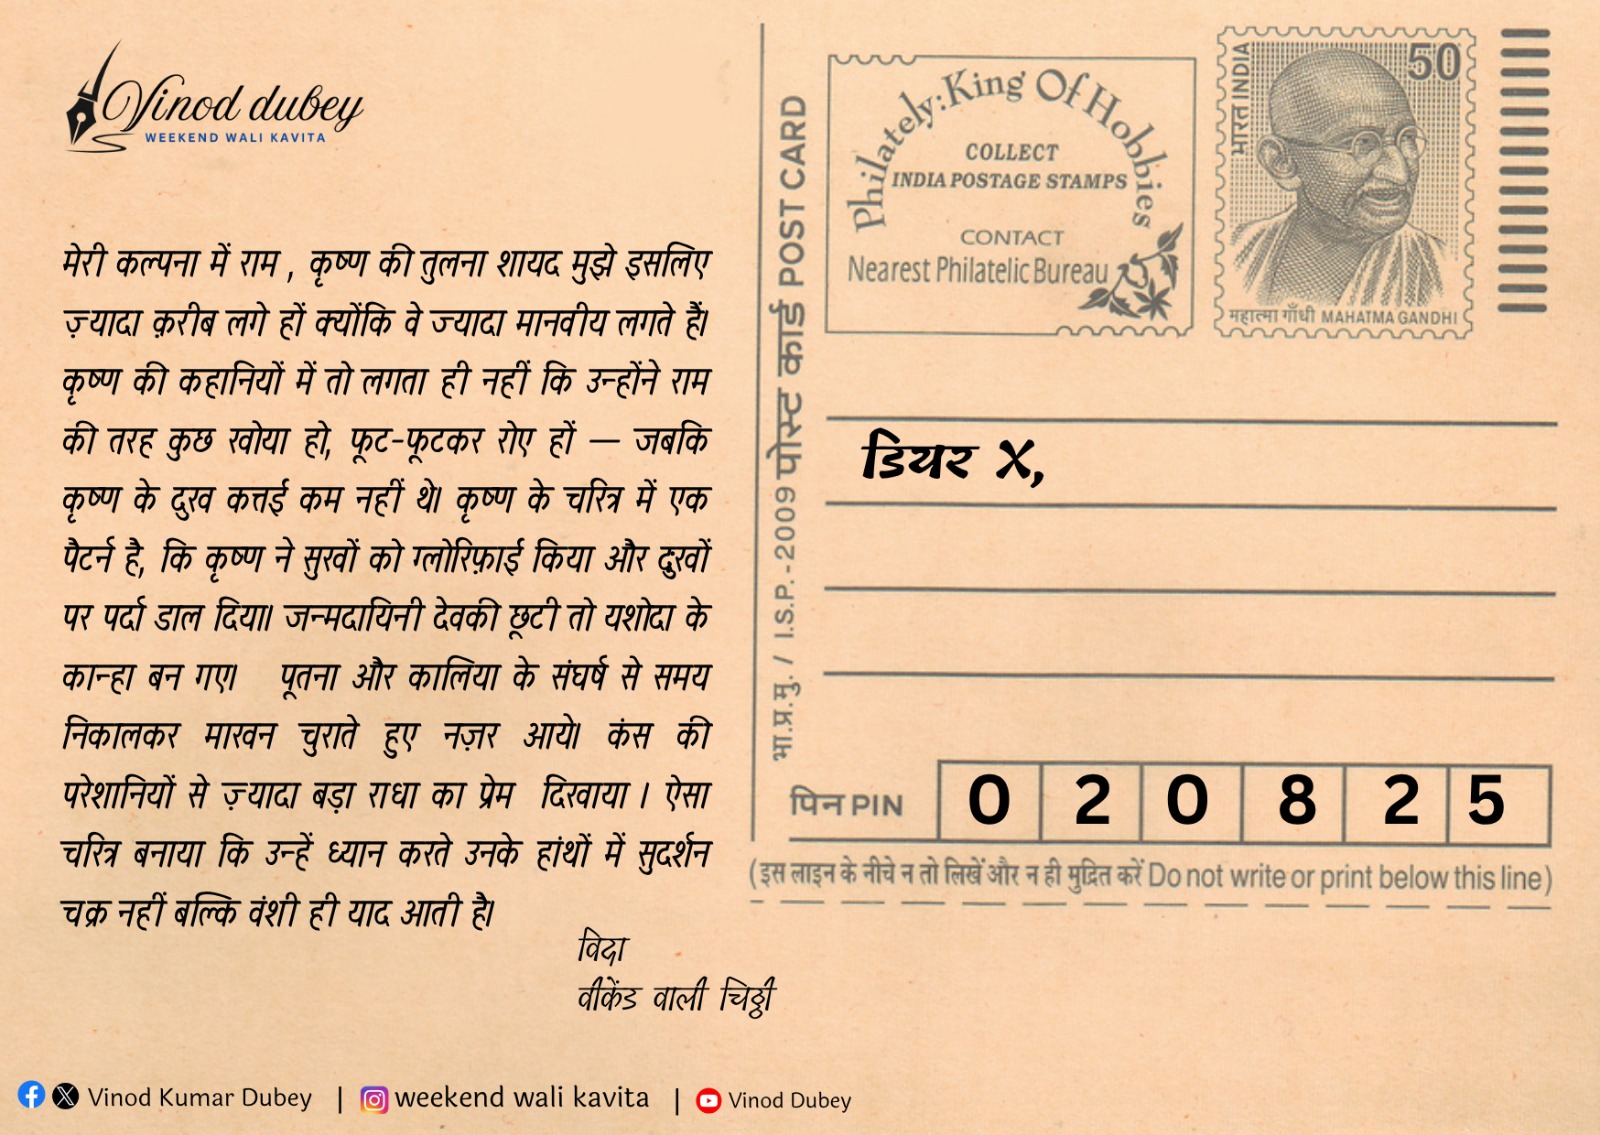 Vinod dubey
WEEKEND WALI KAVITA
मेरी कल्पना में राम , कृष्ण की तुलना शायद मुझे इसलिए
ज़्यादा क़रीब लगे हों क्योंकि वे ज्यादा मानवीय लगते हैं।
कृष्ण की कहानियों में तो लगता ही नहीं कि उन्होंने राम
की तरह कुछ खोया हो, फूट-फूटकर रोए हों — जबकि
कृष्ण के दुख कत्तई कम नहीं थे। कृष्ण के चरित्र में एक
पैटर्न है, कि कृष्ण ने सुखों को ग्लोरिफ़ाई किया और दुखों
पर पर्दा डाल दिया। जन्मदायिनी देवकी छूटी तो यशोदा के
कान्हा बन गए। पूतना और कालिया के संघर्ष से समय
निकालकर माखन चुराते हुए नज़र आये। कंस की
परेशानियों से ज़्यादा बड़ा राधा का प्रेम दिखाया । ऐसा
चरित्र बनाया कि उन्हें ध्यान करते उनके हांथों में सुदर्शन
चक्र नहीं बल्कि वंशी ही याद आती है।
विदा
वीकेंड वाली चिठ्ठी
भा.प्र.मु. / I.S.P.-2009 पोस्ट कार्ड POST CARD
Philately: King Of Hobbies
COLLECT
INDIA POSTAGE STAMPS
CONTACT
Nearest Philatelic Bureau
भारत INDIA
50
महात्मा गाँधी MAHATMA GANDHI
डियर X,
पिन PIN 0 2 0 8 2 5
(इस लाइन के नीचे न तो लिखें और न ही मुद्रित करें Do not write or print below this line)
Vinod Kumar Dubey | weekend wali kavita | Vinod Dubey